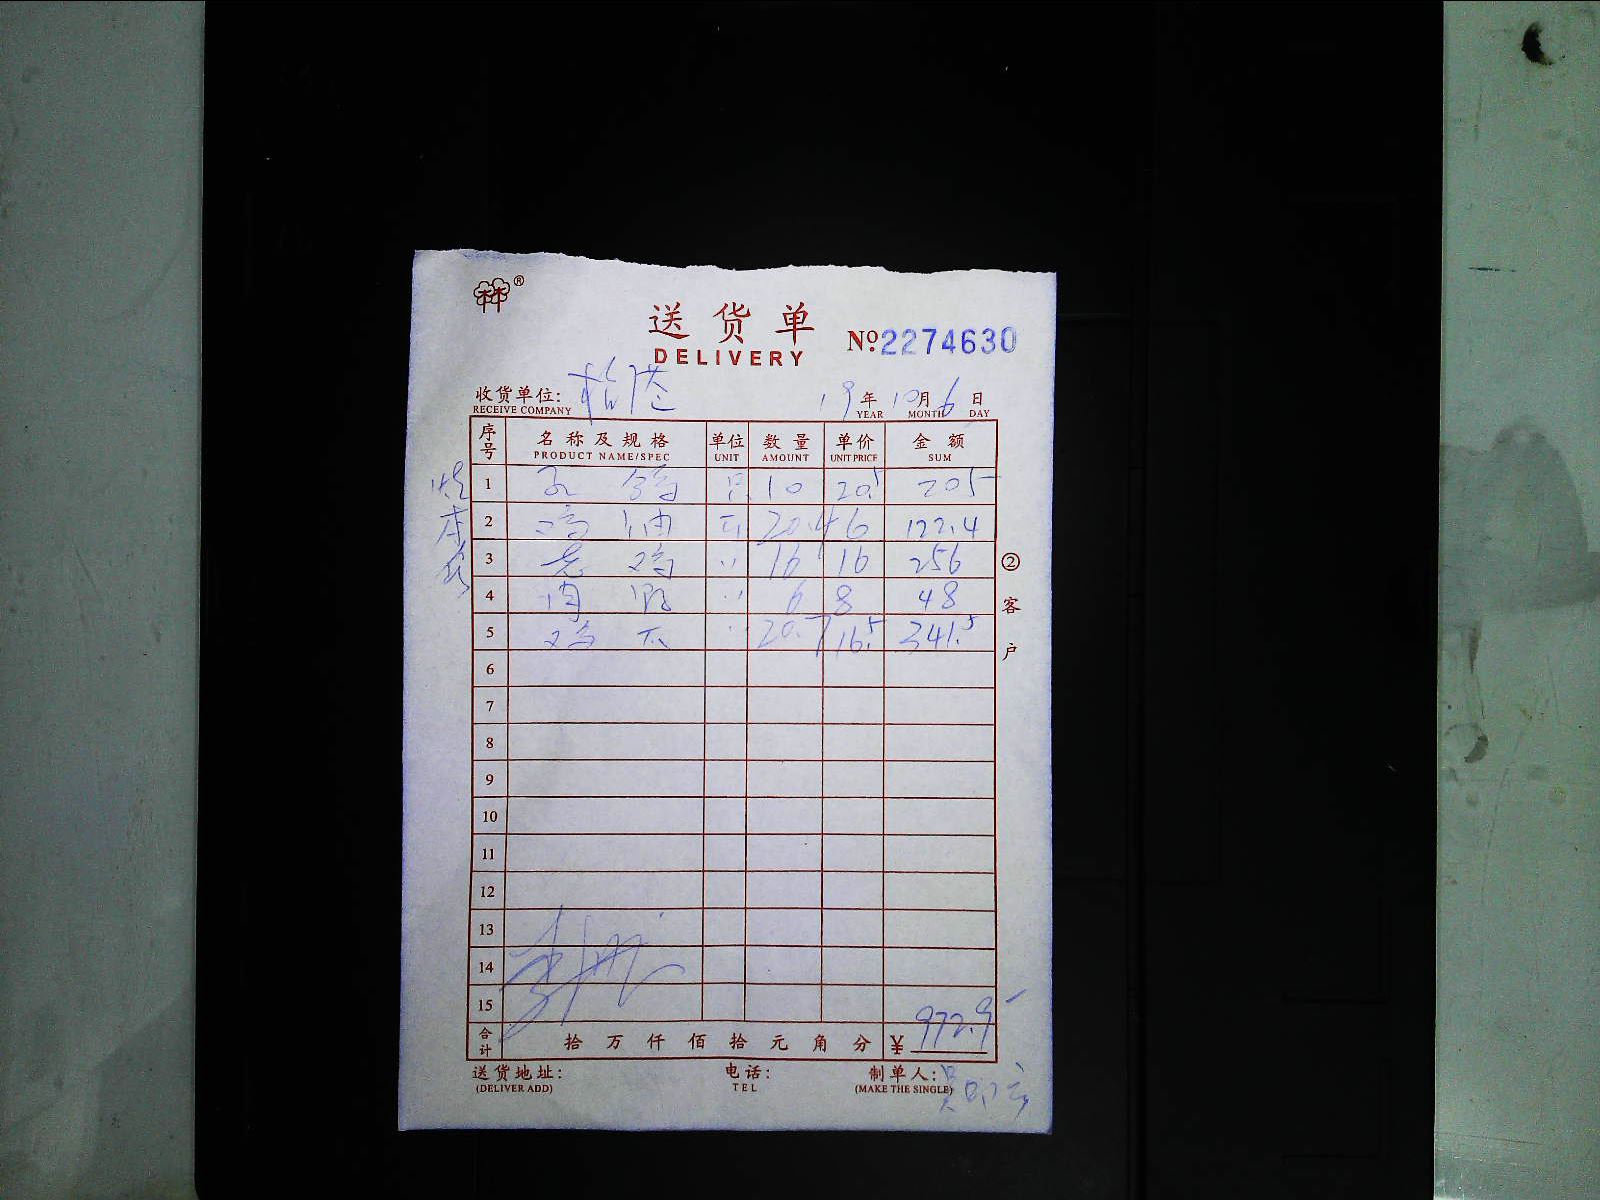 送货单 №2274630
DELIVERY
收货单位: 19年10月6日
RECEIVE COMPANY YEAR MONTH DAY
序号 名称及规格 单位 数量 单价 金额
PRODUCT NAME/SPEC UNIT AMOUNT UNIT PRICE SUM
1 只 10 20.5 205
2 鸡油 20.4 6 122.4
3 老鸡 〃 16 16 256
4 〃 6 8 48
5 〃 20.7 16.5 341.5
6
7
8
9
10
11
12
13
14
15
合计 拾万仟佰拾元角分 ¥ 972.9
②客户
送货地址: 电话: 制单人:
(DELIVER ADD) TEL (MAKE THE SINGLE)